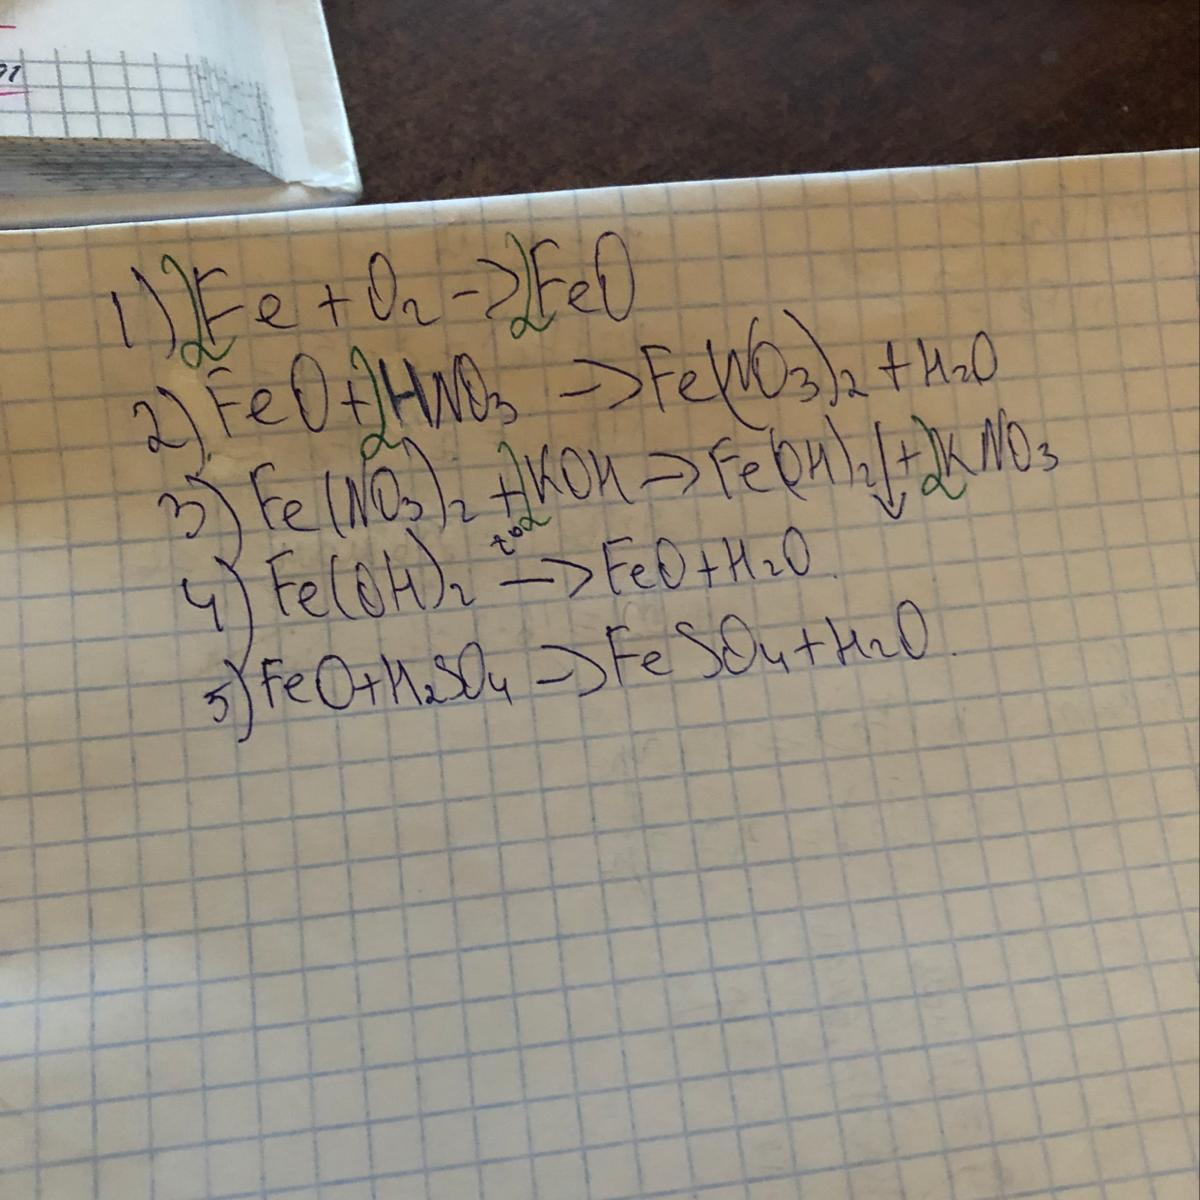 1) 2Fe + O2 -> 2FeO
2) FeO + 2HNO3 -> Fe(NO3)2 + H2O
3) Fe(NO3)2 + 2KOH -> Fe(OH)2↓ + 2KNO3
4) Fe(OH)2 t° -> FeO + H2O.
5) FeO + H2SO4 -> FeSO4 + H2O.